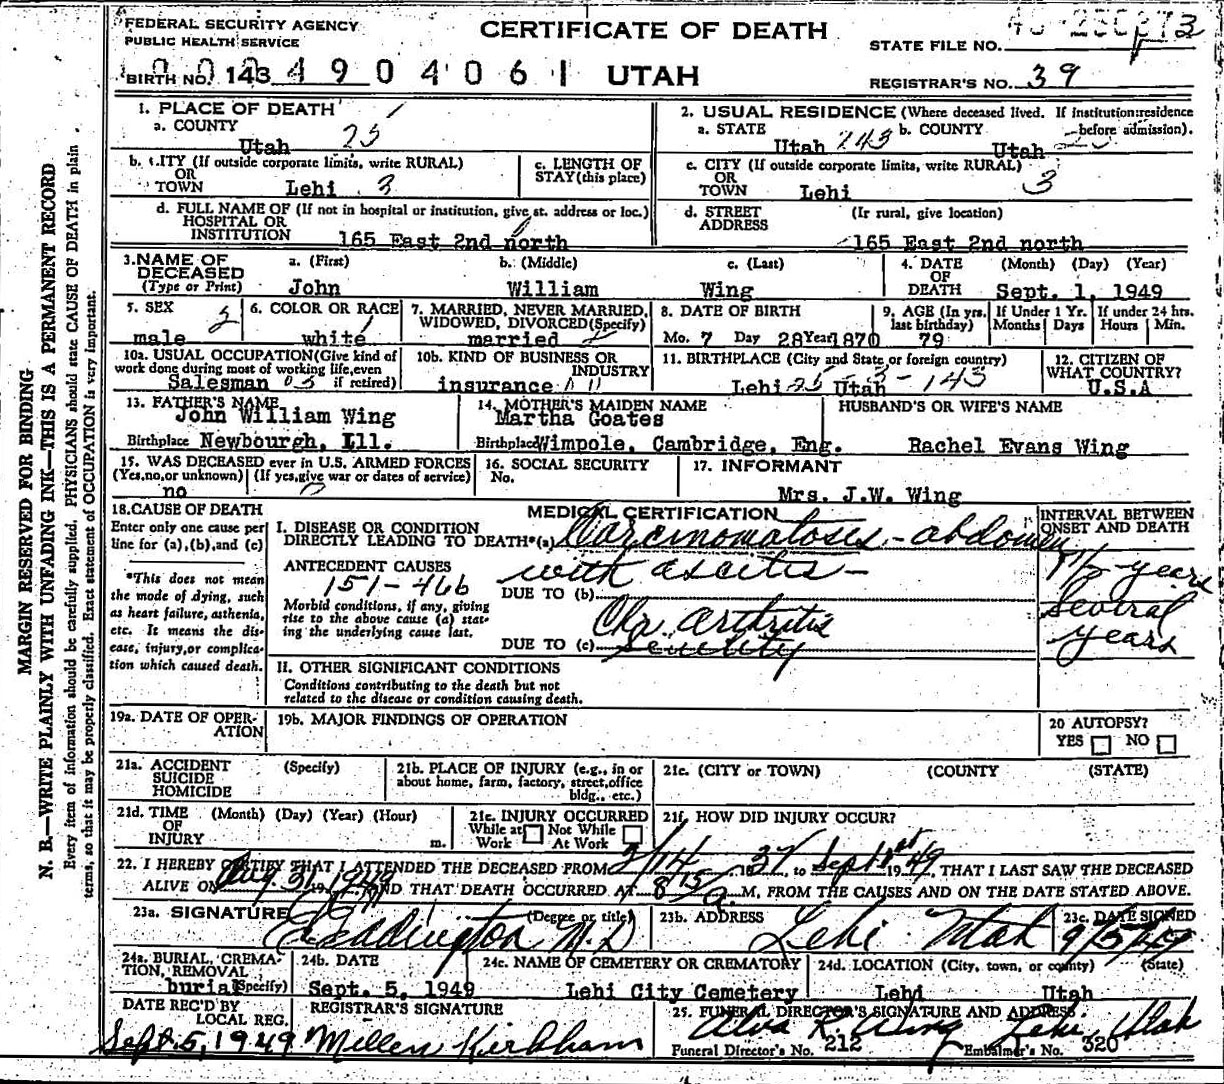 FEDERAL SECURITY AGENCY
PUBLIC HEALTH SERVICE
CERTIFICATE OF DEATH
STATE FILE NO.
BIRTH NO. 143 4 9 0 4 0 6 1 UTAH
REGISTRAR'S NO. 39
1. PLACE OF DEATH
a. COUNTY
Utah 25
2. USUAL RESIDENCE (Where deceased lived. If institution:residence
before admission).
a. STATE b. COUNTY
Utah 243 Utah
b. CITY (If outside corporate limits, write RURAL)
OR
TOWN Lehi 3
c. LENGTH OF
STAY(this place)
c. CITY (If outside corporate limits, write RURAL)
OR
TOWN Lehi 3
d. FULL NAME OF (If not in hospital or institution, give st. address or loc.)
HOSPITAL OR
INSTITUTION
165 East 2nd north
d. STREET (Ir rural, give location)
ADDRESS
165 East 2nd north
3. NAME OF
DECEASED
(Type or Print)
a. (First) b. (Middle) c. (Last)
John William Wing
4. DATE (Month) (Day) (Year)
OF
DEATH Sept. 1, 1949
5. SEX
male 2
6. COLOR OR RACE
white
7. MARRIED, NEVER MARRIED,
WIDOWED, DIVORCED(Specify)
married
8. DATE OF BIRTH
Mo. 7 Day 28 Year 1870
9. AGE (In yrs.
last birthday)
79
If Under 1 Yr.
Months Days
If under 24 hrs.
Hours Min.
10a. USUAL OCCUPATION(Give kind of
work done during most of working life,even
if retired)
Salesman
10b. KIND OF BUSINESS OR
INDUSTRY
insurance
11. BIRTHPLACE (City and State or foreign country)
Lehi Utah
12. CITIZEN OF
WHAT COUNTRY?
U.S.A
13. FATHER'S NAME
John William Wing
Birthplace Newbourgh, Ill.
14. MOTHER'S MAIDEN NAME
Martha Goates
Birthplace Wimpole, Cambridge, Eng.
HUSBAND'S OR WIFE'S NAME
Rachel Evans Wing
15. WAS DECEASED ever in U.S. ARMED FORCES
(Yes,no,or unknown) (If yes,give war or dates of service)
no
16. SOCIAL SECURITY
No.
17. INFORMANT
Mrs. J.W. Wing
18.CAUSE OF DEATH
Enter only one cause per
line for (a),(b),and (c)
*This does not mean
the mode of dying, such
as heart failure, asthenia,
etc. It means the dis-
ease, injury,or complica-
tion which caused death.
MEDICAL CERTIFICATION
I. DISEASE OR CONDITION
DIRECTLY LEADING TO DEATH*(a) Carcinomatosis - abdomen
ANTECEDENT CAUSES with ascitis -
151-466
DUE TO (b)
Morbid conditions, if any, giving
rise to the above cause (a) stat-
ing the underlying cause last.
Chr arthritis
DUE TO (c) senility
INTERVAL BETWEEN
ONSET AND DEATH
years
several
years
II. OTHER SIGNIFICANT CONDITIONS
Conditions contributing to the death but not
related to the disease or condition causing death.
19a. DATE OF OPER-
ATION
19b. MAJOR FINDINGS OF OPERATION
20 AUTOPSY?
YES NO
21a. ACCIDENT (Specify)
SUICIDE
HOMICIDE
21b. PLACE OF INJURY (e.g., in or
about home, farm, factory, street,office
bldg., etc.)
21c. (CITY or TOWN) (COUNTY (STATE)
21d. TIME (Month) (Day) (Year) (Hour)
OF
INJURY m.
21e. INJURY OCCURRED
While at Not While
Work At Work
21f. HOW DID INJURY OCCUR?
22. I HEREBY CERTIFY THAT I ATTENDED THE DECEASED FROM 2/14 1937, to Sept 1st 1949, THAT I LAST SAW THE DECEASED
ALIVE ON Aug. 31, 1949 AND THAT DEATH OCCURRED AT 8 15/a. M, FROM THE CAUSES AND ON THE DATE STATED ABOVE.
23a. SIGNATURE (Degree or title)
Eddington M.D
23b. ADDRESS
Lehi Utah
23c. DATE SIGNED
9/5/49
24a. BURIAL, CREMA-
TION, REMOVAL
burial (Specify)
24b. DATE
Sept. 5, 1949
24c. NAME OF CEMETERY OR CREMATORY
Lehi City Cemetery
24d. LOCATION (City, town, or county) (State)
Lehi Utah
DATE REC'D BY
LOCAL REG.
Sept. 5, 1949
REGISTRAR'S SIGNATURE
Mellen Kirkham
25. FUNERAL DIRECTOR'S SIGNATURE AND ADDRESS
Alva R. Wing Lehi, Utah
Funeral Director's No. 212 Embalmer's No. 320
MARGIN RESERVED FOR BINDING
N. B.—WRITE PLAINLY WITH UNFADING INK—THIS IS A PERMANENT RECORD
Every item of information should be carefully supplied. PHYSICIANS should state CAUSE OF DEATH in plain
terms, so that it may be properly classified. Exact statement of OCCUPATION is very important.